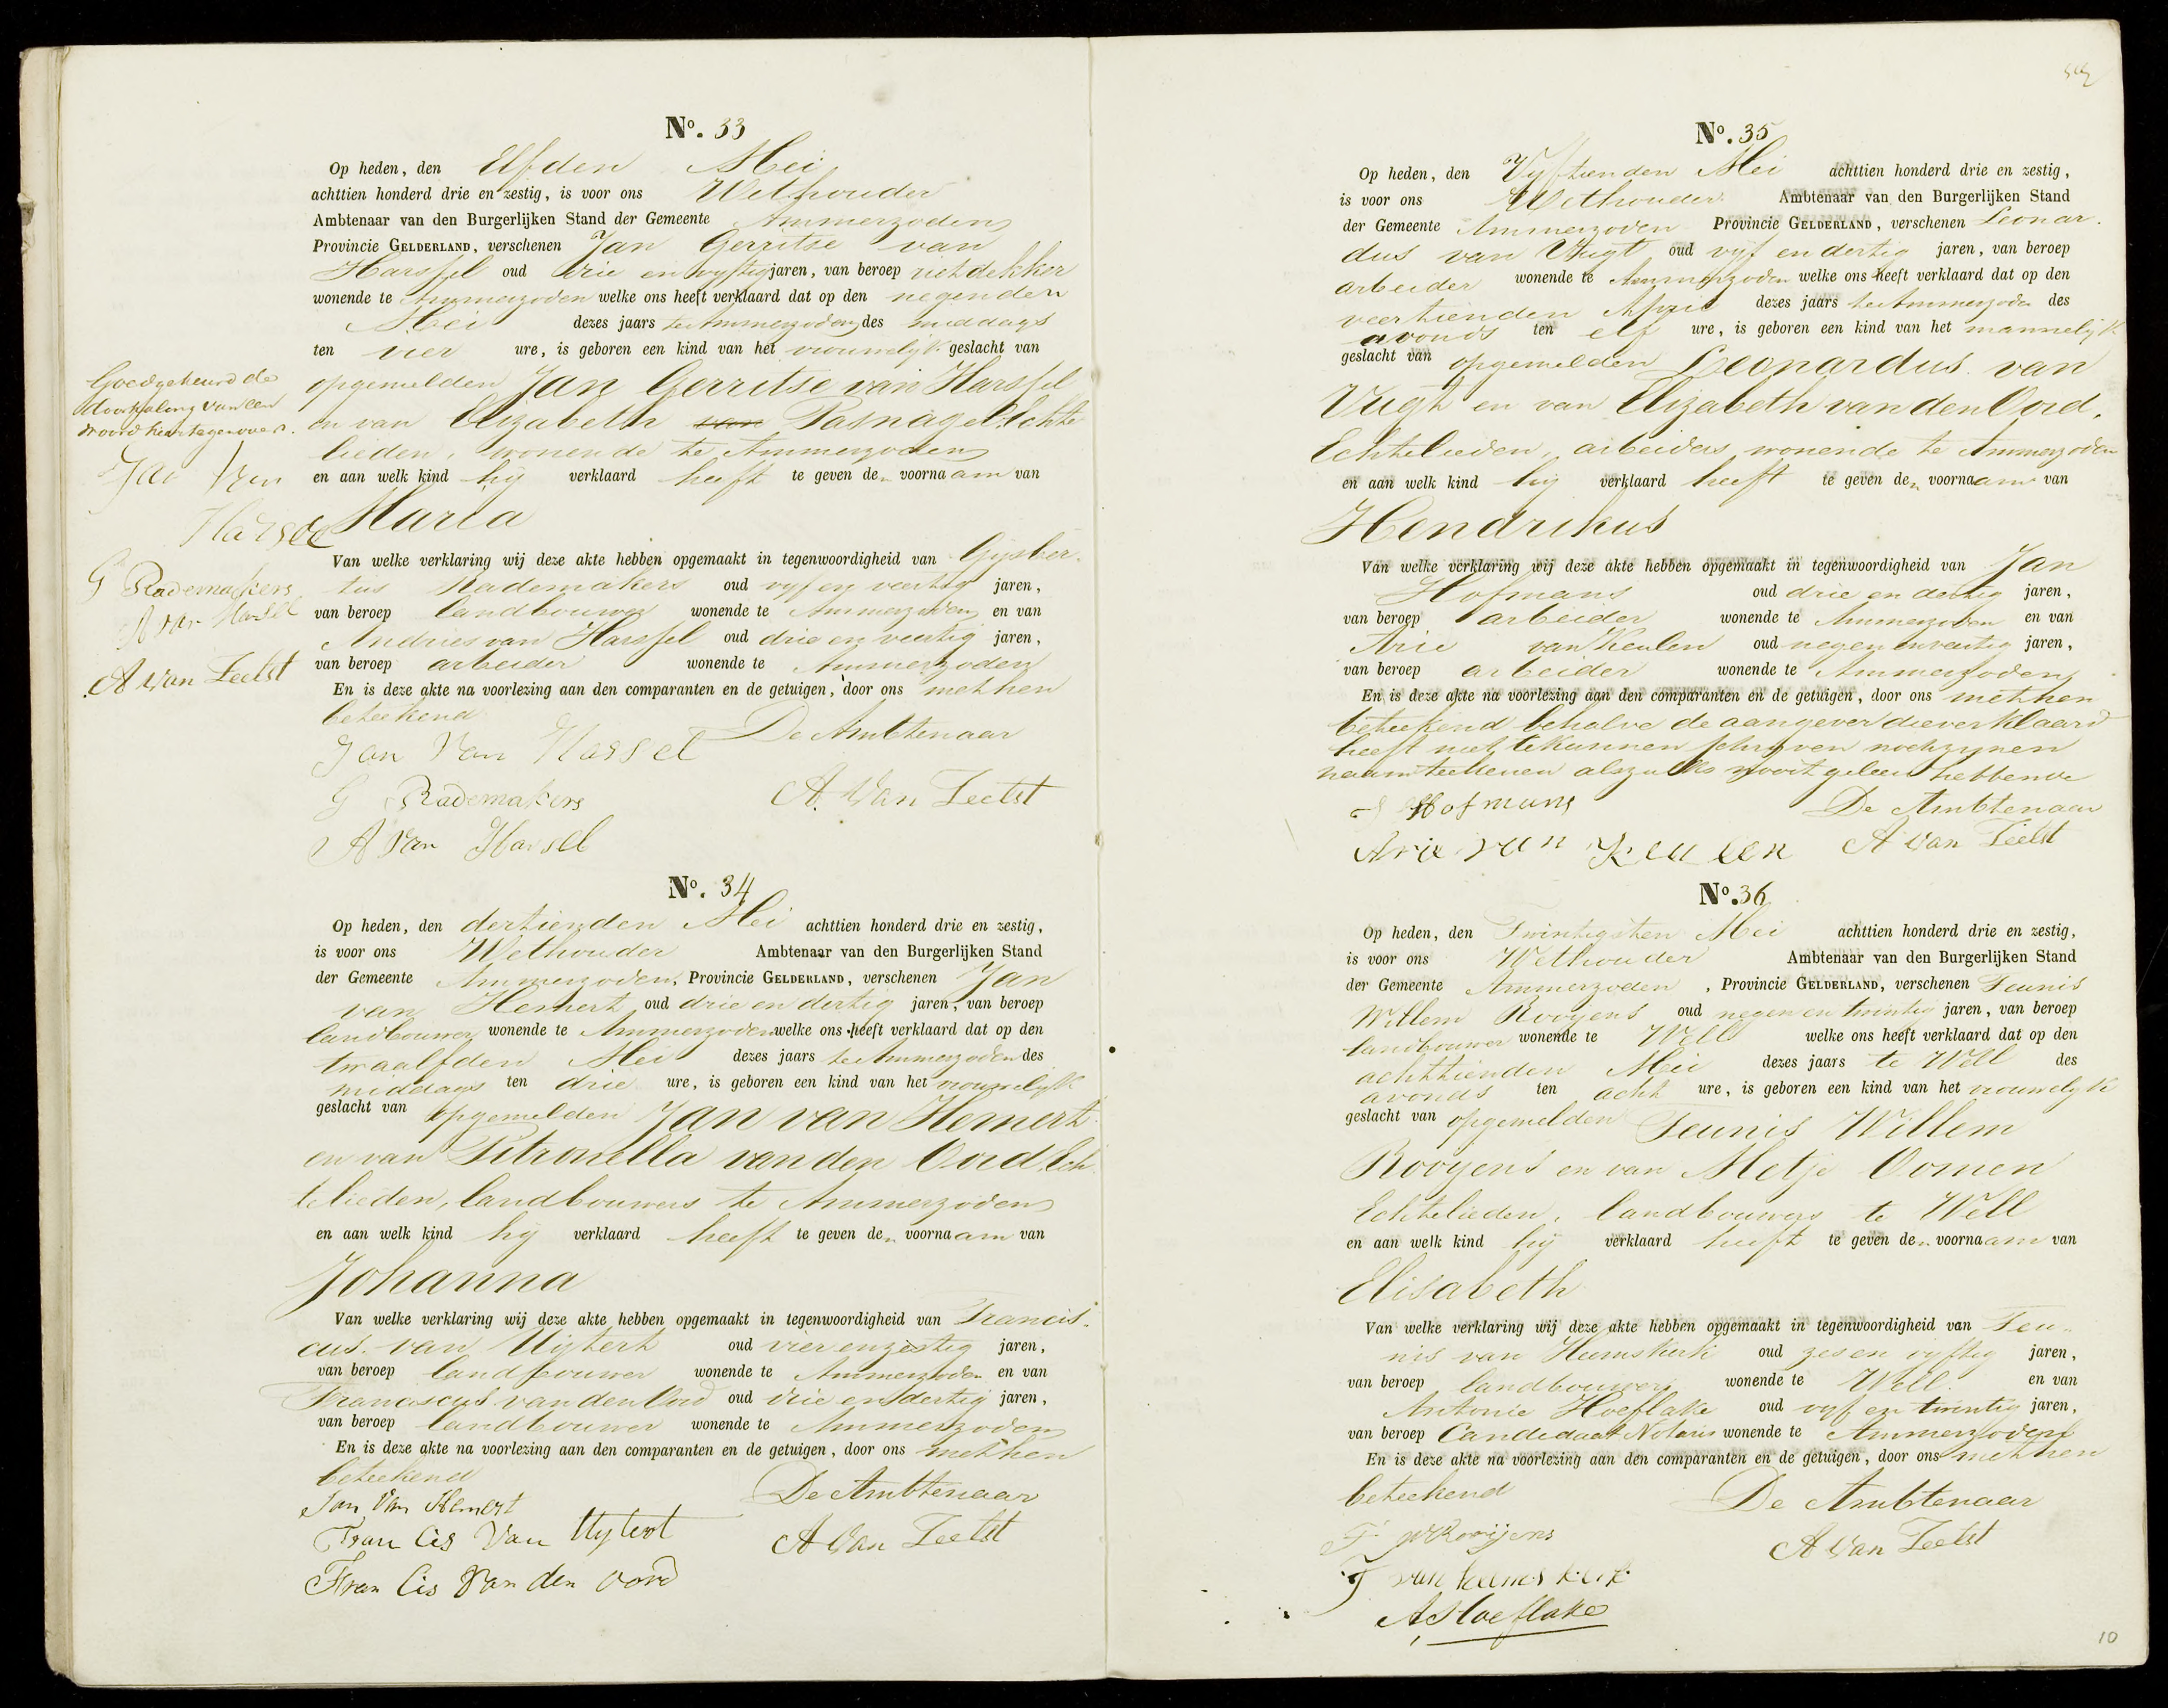 No. 33
Op heden, den Elfden Mei
achttien honderd drie en zestig, is voor ons Wethouder
Ambtenaar van den Burgerlijken Stand der Gemeente Ammerzoden
Provincie GELDERLAND, verschenen Jan Gerritse van
Harssel oud drie en vyftig jaren, van beroep rietdekker
wonende te Ammerzoden welke ons heeft verklaard dat op den negenden
Mei dezes jaars te Ammerzoden des middags
ten vier ure, is geboren een kind van het vrouwelyk geslacht van
opgemelden Jan Gerritse van Harssel
en van Elizabeth van Pasnagel Echte
lieden, wonende te Ammerzoden
en aan welk kind hij verklaard heeft te geven den voornaam van
Maria
Van welke verklaring wij deze akte hebben opgemaakt in tegenwoordigheid van Gysber-
tus Rademakers oud vyf en veertig jaren,
van beroep landbouwer wonende te Ammerzoden en van
Andries van Harssel oud drie en veertig jaren,
van beroep arbeider wonende te Ammerzoden
En is deze akte na voorlezing aan den comparanten en de getuigen, door ons met hen
beteekend
De Ambtenaar
Jan Van Hassel
G Rademakers
A. Van Zeelst
A Van Harsel
Goedgekeurd de
doorhaling van een
woord hiertegenover.
Jan Van
Harsel
G Rademakers
A van Harsel
A van Zeelst
No. 34
Op heden, den dertienden Mei achttien honderd drie en zestig,
is voor ons Wethouder Ambtenaar van den Burgerlijken Stand
der Gemeente Ammerzoden, Provincie GELDERLAND, verschenen Jan
van Hemert oud drie en dertig jaren, van beroep
landbouwer wonende te Ammerzoden welke ons heeft verklaard dat op den
twaalfden Mei dezes jaars te Ammerzoden des
middags ten drie ure, is geboren een kind van het vrouwelyk
geslacht van opgemelden Jan van Hemert
en van Petronella van den Oord Ech
telieden, landbouwers te Ammerzoden
en aan welk kind hij verklaard heeft te geven den voornaam van
Johanna
Van welke verklaring wij deze akte hebben opgemaakt in tegenwoordigheid van Francis-
cus van Uytert oud vier en zestig jaren,
van beroep landbouwer wonende te Ammerzoden en van
Franciscus van den Oord oud drie en dertig jaren,
van beroep landbouwer wonende te Ammerzoden
En is deze akte na voorlezing aan den comparanten en de getuigen, door ons met hen
beteekend
De Ambtenaar
Jan Van Hemert
Fran Cis Van Uytert
A Van Zeelst
Fran Cis Van den Oord
No. 35
Op heden, den Vyftienden Mei achttien honderd drie en zestig,
is voor ons Wethouder Ambtenaar van den Burgerlijken Stand
der Gemeente Ammerzoden Provincie GELDERLAND, verschenen Leonar-
dus van Vugt oud vijf en dertig jaren, van beroep
arbeider wonende te Ammerzoden welke ons heeft verklaard dat op den
veertienden April dezes jaars te Ammerzoden des
avonds ten elf ure, is geboren een kind van het mannelijk
geslacht van opgemelden Leonardus van
Vugt en van Elizabeth van den Oord,
Echtelieden, arbeiders wonende te Ammerzoden
en aan welk kind hij verklaard heeft te geven den voornaam van
Hendrikus
Van welke verklaring wij deze akte hebben opgemaakt in tegenwoordigheid van Jan
Hofmans oud drie en dertig jaren,
van beroep arbeider wonende te Ammerzoden en van
Arie van Keulen oud negen en veertig jaren,
van beroep arbeider wonende te Ammerzoden
En is deze akte na voorlezing aan den comparanten en de getuigen, door ons met hen
beteekend behalve de aangever die verklaard
heeft niet te kunnen schryven noch zynen
naam teekenen als zulks nooit geleerd hebbende
De Ambtenaar
Hofmans
Arie van Keulen
A Van Zeelst
No. 36
Op heden, den Twintigsten Mei achttien honderd drie en zestig,
is voor ons Wethouder Ambtenaar van den Burgerlijken Stand
der Gemeente Ammerzoden, Provincie GELDERLAND, verschenen Teunis
Willem Rooyens oud negen en twintig jaren, van beroep
landbouwer wonende te Well welke ons heeft verklaard dat op den
achttienden Mei dezes jaars te Well des
avonds ten acht ure, is geboren een kind van het vrouwelyk
geslacht van opgemelden Teunis Willem
Rooyens en van Metje Oomen
Echtelieden, landbouwers te Well
en aan welk kind hij verklaard heeft te geven den voornaam van
Elisabeth
Van welke verklaring wij deze akte hebben opgemaakt in tegenwoordigheid van Teu-
nis van Heemskerk oud zes en vyftig jaren,
van beroep landbouwer wonende te Well en van
Antonie Hoeflake oud vyf en twintig jaren,
van beroep Candidaat Notaris wonende te Ammerzoden
En is deze akte na voorlezing aan den comparanten en de getuigen, door ons met hen
beteekend
De Ambtenaar
T W Rooijens
A Van Zeelst
T van heemskerk
A Hoeflake
10